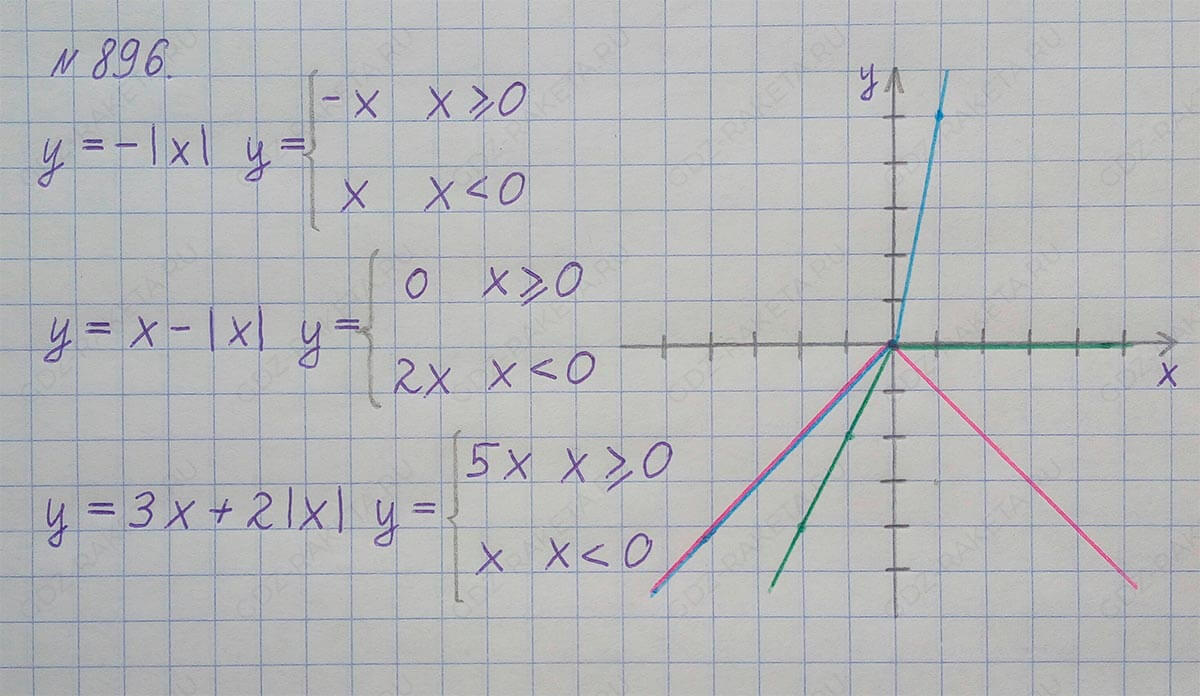 N 896.
y = -|x| y = { -x x ⩾ 0
x x < 0
y = x - |x| y = { 0 x ⩾ 0
2x x < 0
y = 3x + 2|x| y = { 5x x ⩾ 0
x x < 0
y
x
GDZ-RAKETA.RU